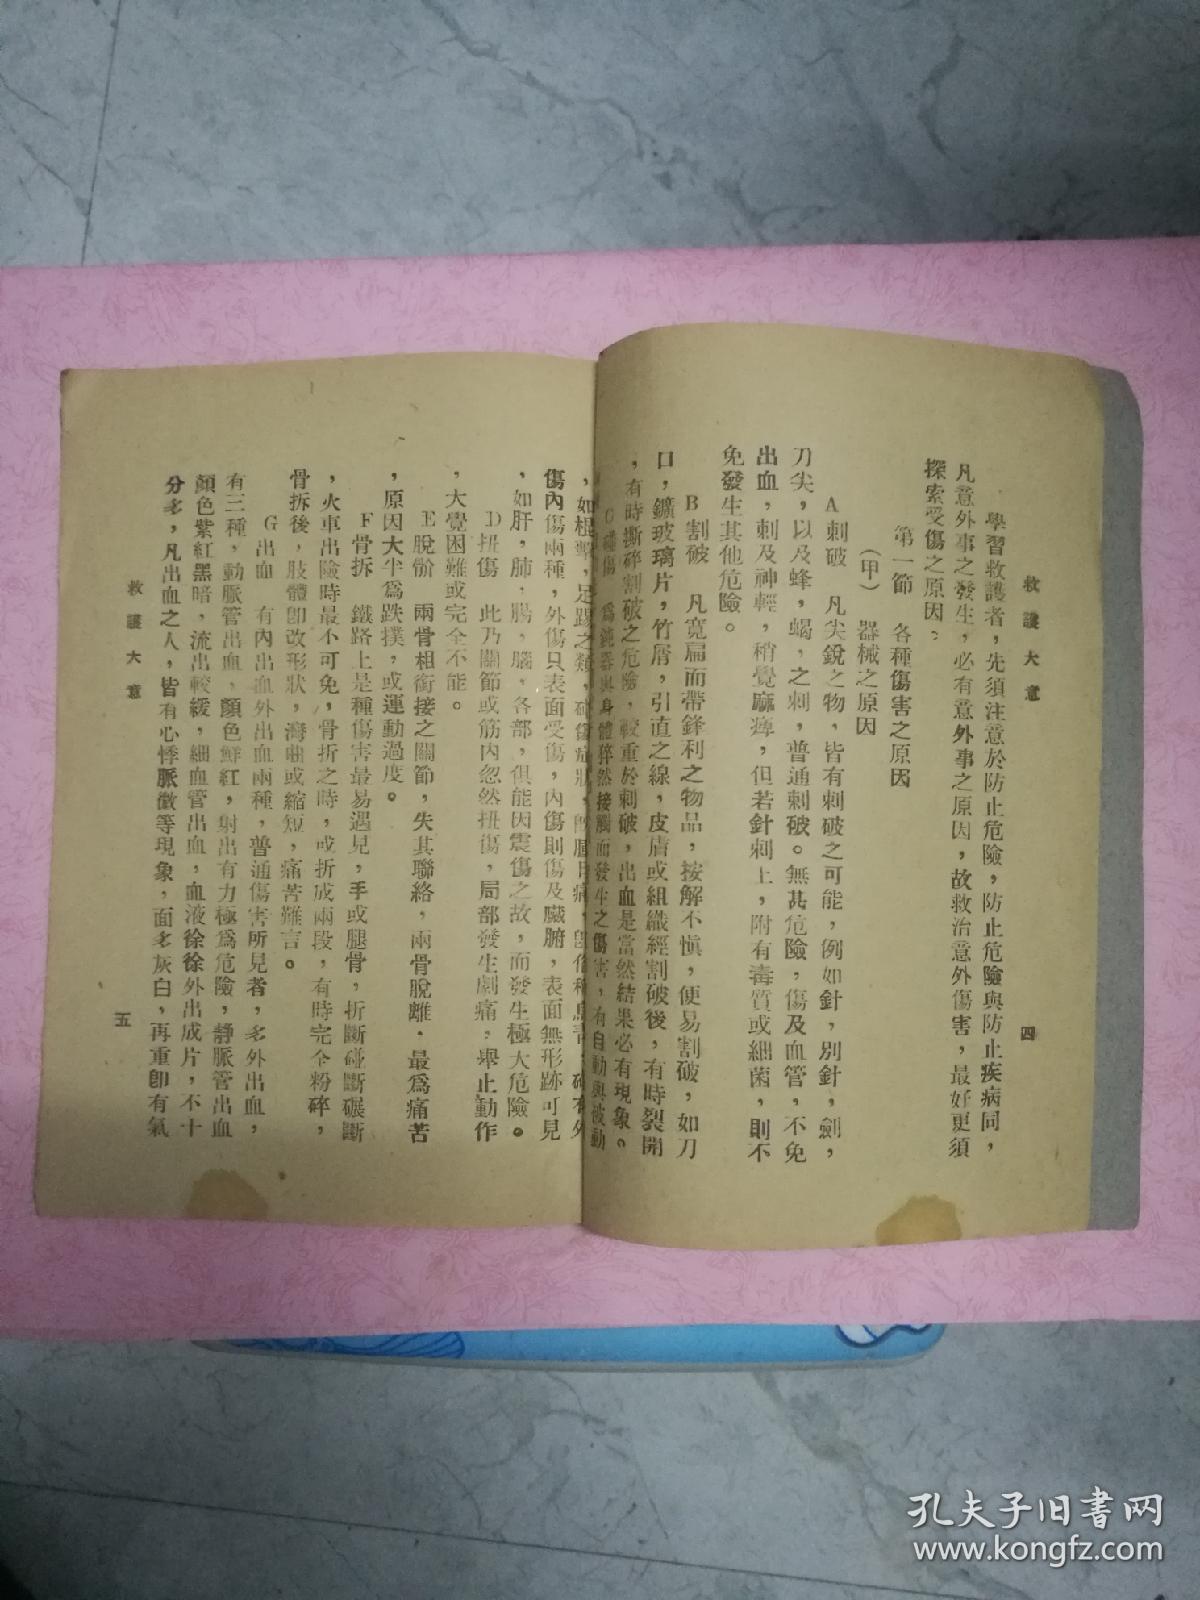 救護大意
四
學習救護者，先須注意於防止危險，防止危險與防止疾病同，
凡意外事之發生，必有意外事之原因，故救治意外傷害，最好更須
探索受傷之原因。
第一節　各種傷害之原因
（甲）　器械之原因
A刺破　凡尖銳之物，皆有刺破之可能，例如針，別針，劍，
刀尖，以及蜂，蝎，之刺，普通刺破。無甚危險，傷及血管，不免
出血，刺及神輕，稍覺麻痺，但若針刺上，附有毒質或細菌，則不
免發生其他危險。
B割破　凡寬扁而帶鋒利之物品，按解不愼，便易割破，如刀
口，鑛玻璃片，竹屑，引直之線，皮膚或組織經割破後，有時裂開
，有時撕碎割破之危險，較重於刺破，出血是當然結果必有現象。
C碰傷　爲鈍器與身體猝然接觸而發生之傷害，有自動與被動
，如棍擊，足踢之類，
傷內傷兩種，外傷只表面受傷，內傷則傷及臟腑，表面無形跡可見
，如肝，肺，腸，腦，各部，俱能因震傷之故，而發生極大危險。
D扭傷　此乃關節或筋內忽然扭傷，局部發生劇痛，舉止動作
，大覺困難或完全不能。
E脫骱　兩骨相銜接之關節，失其聯絡，兩骨脫離．最爲痛苦
，原因大半爲跌撲，或運動過度。
F骨拆　鐵路上是種傷害最易遇見，手或腿骨，折斷碰斷碾斷
，火車出險時最不可免，骨折之時，或折成兩段，有時完全粉碎，
骨拆後，肢體卽改形狀，灣曲或縮短，痛苦難言。
G出血　有內出血外出血兩種，普通傷害所見者，多外出血，
有三種，動脈管出血，顏色鮮紅，射出有力極爲危險，靜脈管出血
顏色紫紅黑暗，流出較緩，細血管出血，血液徐徐外出成片，不十
分多，凡出血之人，皆有心悸脈微等現象，面多灰白，再重卽有氣
救護大意
五
孔夫子旧书网
www.kongfz.com